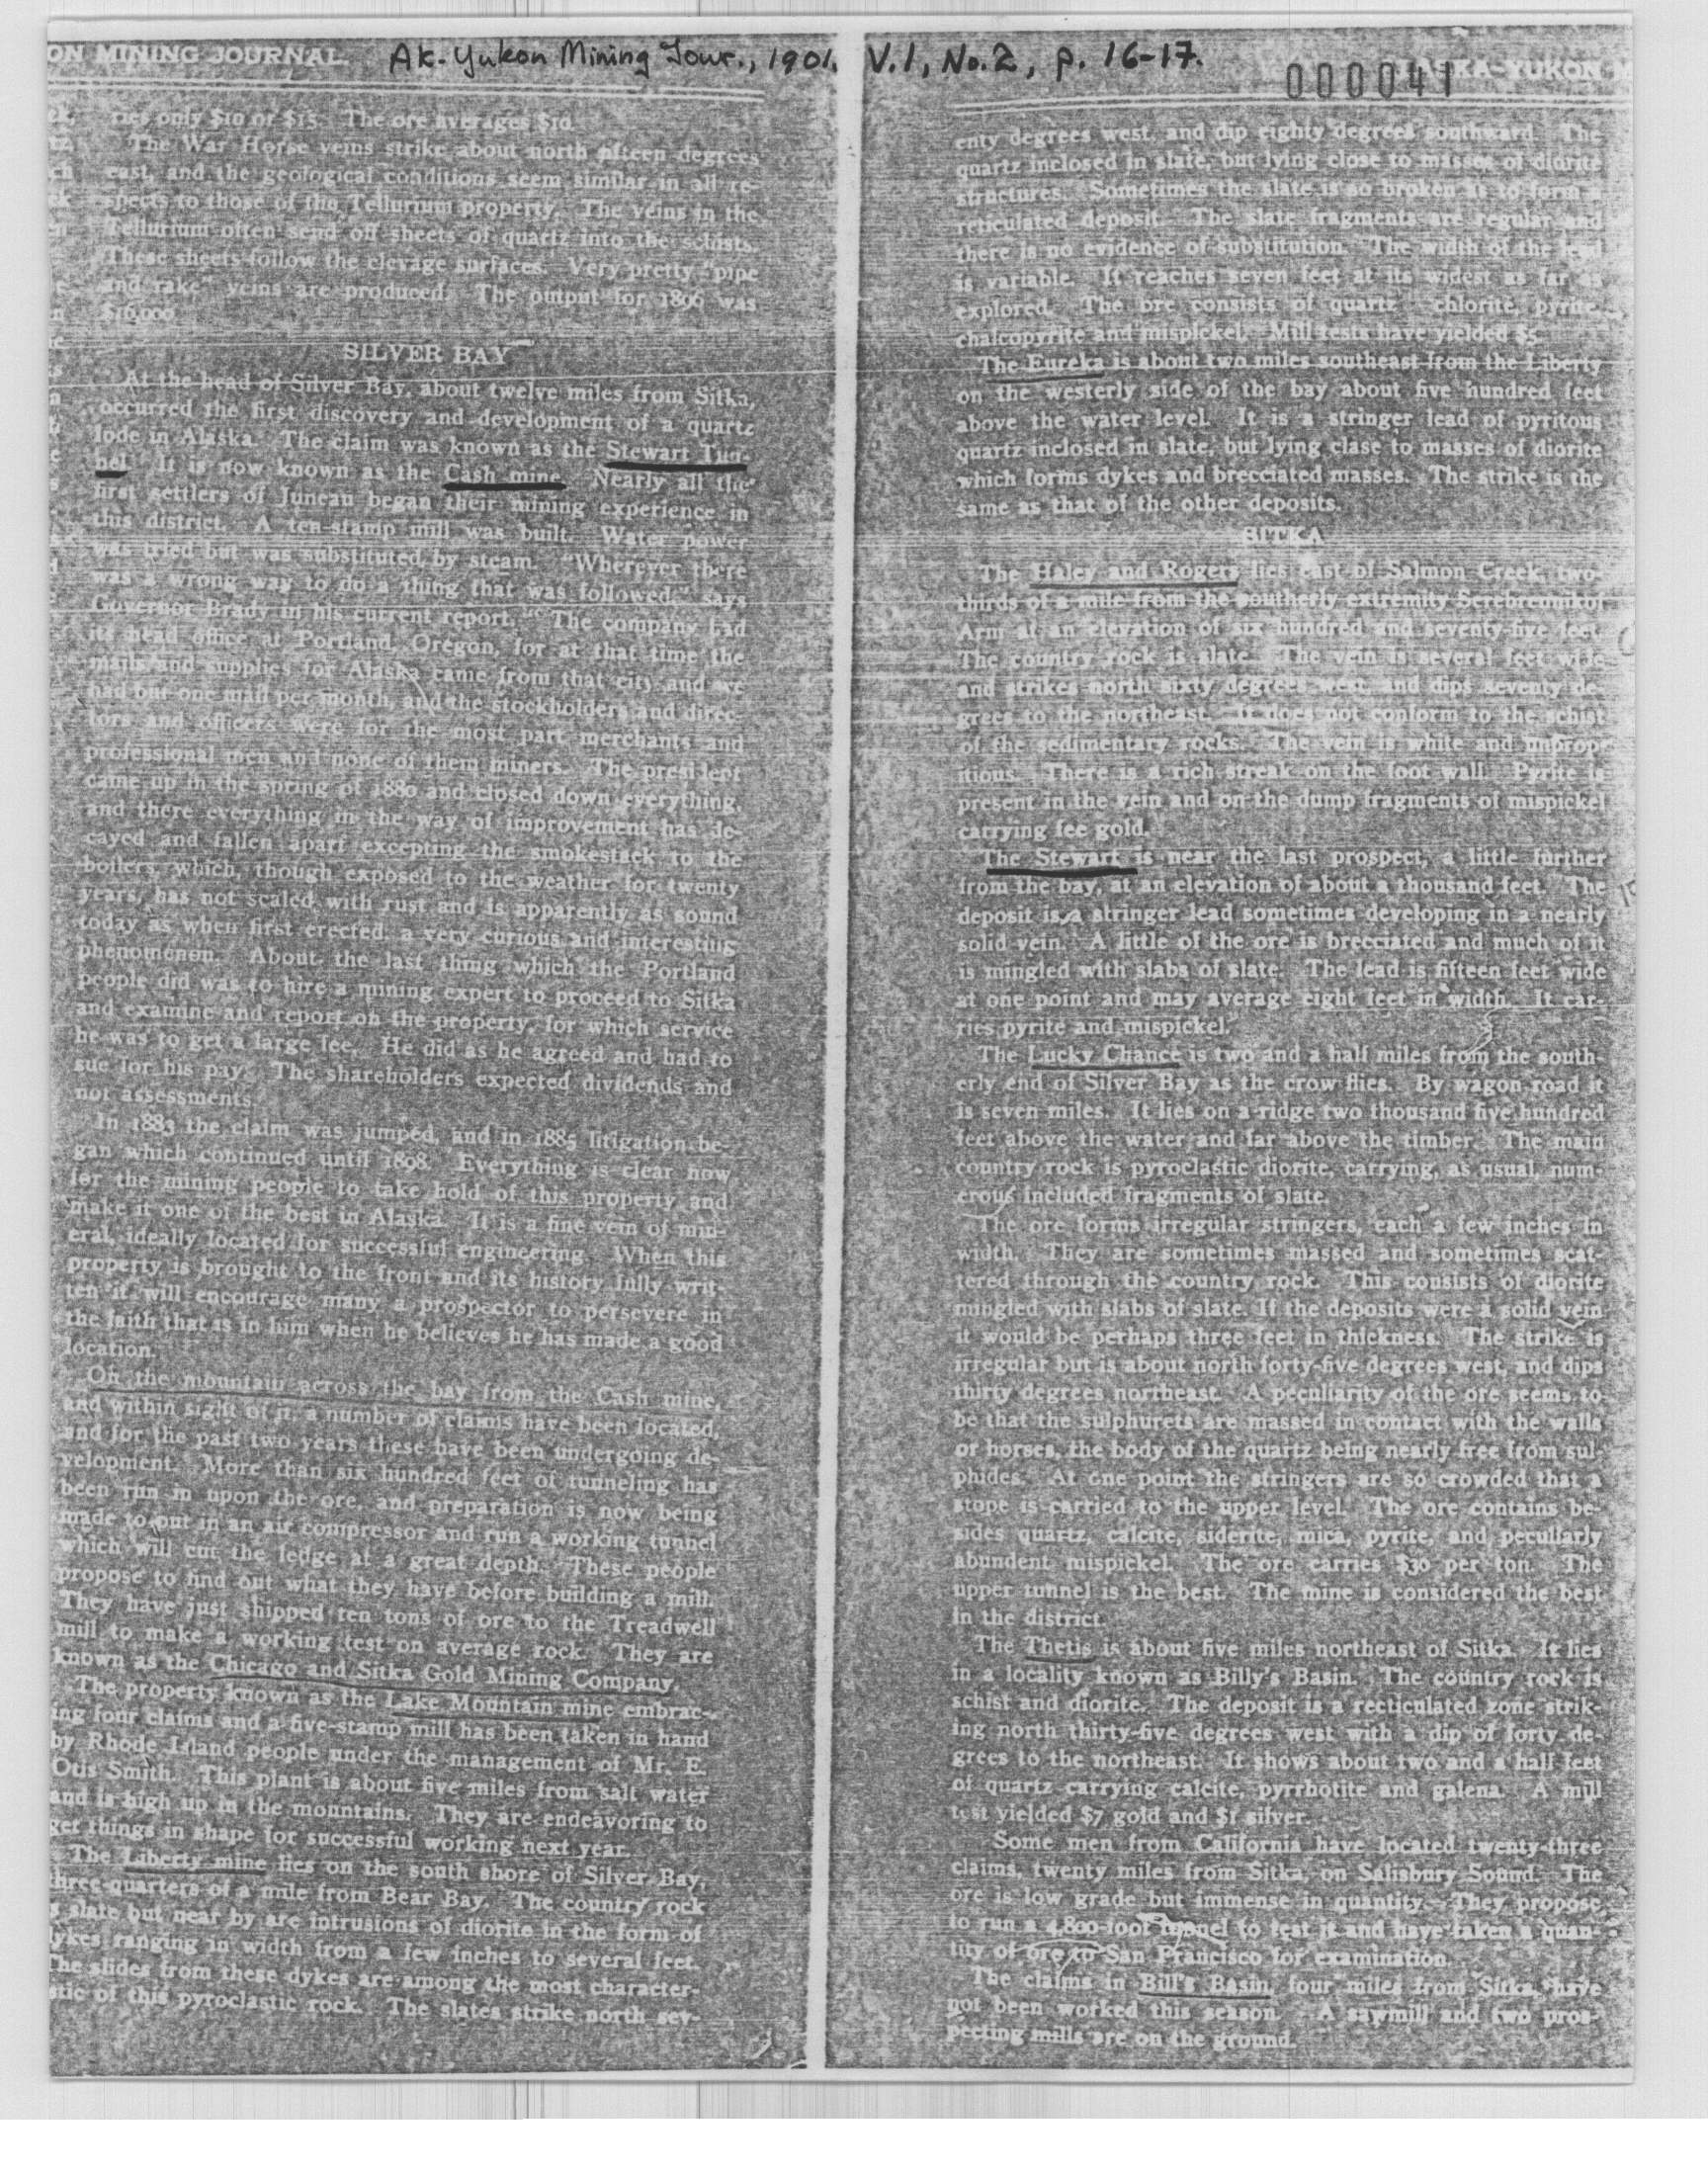 ON MINING JOURNAL
Ak. Yukon Mining Jour., 1901, V.1, No.2, p. 16-17.
000041
KA-YUKON M
ries only $10 or $15. The ore averages $10.
The War Horse veins strike about north fifteen degrees
east, and the geological conditions seem similar in all re-
spects to those of the Tellurium property. The veins in the
Tellurium often send off sheets of quartz into the schists.
These sheets follow the clevage surfaces. Very pretty "pipe
and rake" veins are produced. The output for 1896 was
$16,000
SILVER BAY
At the head of Silver Bay, about twelve miles from Sitka,
occurred the first discovery and development of a quartz
lode in Alaska. The claim was known as the Stewart Tun-
nel. It is now known as the Cash mine. Nearly all the
first settlers of Juneau began their mining experience in
this district. A ten-stamp mill was built. Water power
was tried but was substituted by steam. "Wherever there
was a wrong way to do a thing that was followed," says
Governor Brady in his current report. "The company had
its head office at Portland, Oregon, for at that time the
mails and supplies for Alaska came from that city and we
had but one mail per month, and the stockholders and direc-
tors and officers were for the most part merchants and
professional men and none of them miners. The president
came up in the spring of 1880 and closed down everything,
and there everything in the way of improvement has de-
cayed and fallen apart excepting the smokestack to the
boilers, which, though exposed to the weather for twenty
years, has not scaled with rust and is apparently as sound
today as when first erected, a very curious and interesting
phenomenon. About the last thing which the Portland
people did was to hire a mining expert to proceed to Sitka
and examine and report on the property, for which service
he was to get a large fee. He did as he agreed and had to
sue for his pay. The shareholders expected dividends and
not assessments.
In 1883 the claim was jumped, and in 1885 litigation be-
gan which continued until 1898. Everything is clear now
for the mining people to take hold of this property and
make it one of the best in Alaska. It is a fine vein of min-
eral, ideally located for successful engineering. When this
property is brought to the front and its history fully writ-
ten it will encourage many a prospector to persevere in
the faith that is in him when he believes he has made a good
location.
On the mountain across the bay from the Cash mine,
and within sight of it, a number of claims have been located,
and for the past two years these have been undergoing de-
velopment. More than six hundred feet of tunneling has
been run in upon the ore, and preparation is now being
made to put in an air compressor and run a working tunnel
which will cut the ledge at a great depth. These people
propose to find out what they have before building a mill.
They have just shipped ten tons of ore to the Treadwell
mill to make a working test on average rock. They are
known as the Chicago and Sitka Gold Mining Company.
The property known as the Lake Mountain mine embrac-
ing four claims and a five-stamp mill has been taken in hand
by Rhode Island people under the management of Mr. E.
Otis Smith. This plant is about five miles from salt water
and is high up in the mountains. They are endeavoring to
get things in shape for successful working next year.
The Liberty mine lies on the south shore of Silver Bay,
three-quarters of a mile from Bear Bay. The country rock
s slate but near by are intrusions of diorite in the form of
lykes ranging in width from a few inches to several feet.
The slides from these dykes are among the most character-
stic of this pyroclastic rock. The slates strike north sev-
enty degrees west, and dip eighty degrees southward. The
quartz inclosed in slate, but lying close to masses of diorite
structures. Sometimes the slate is so broken as to form a
reticulated deposit. The slate fragments are regular and
there is no evidence of substitution. The width of the
is variable. It reaches seven feet at its widest as far as
explored. The ore consists of quartz chlorite, pyrite,
chalcopyrite and mispickel. Mill tests have yielded $5
The Eureka is about two miles southeast from the Liberty
on the westerly side of the bay about five hundred feet
above the water level. It is a stringer lead of pyritous
quartz inclosed in slate, but lying clase to masses of diorite
which forms dykes and brecciated masses. The strike is the
same as that of the other deposits.
SITKA
The Haley and Rogers lies east of Salmon Creek, two-
thirds of a mile from the southerly extremity Serebrennikof
Arm at an elevation of six hundred and seventy-five feet.
The country rock is slate. The vein is several feet wide
and strikes north sixty degrees west, and dips seventy de-
grees to the northeast. It does not conform to the schist
of the sedimentary rocks. The vein is white and unprop-
itious. There is a rich streak on the foot wall. Pyrite is
present in the vein and on the dump fragments of mispickel
carrying fee gold.
The Stewart is near the last prospect, a little further
from the bay, at an elevation of about a thousand feet. The
deposit is a stringer lead sometimes developing in a nearly
solid vein. A little of the ore is brecciated and much of it
is mingled with slabs of slate. The lead is fifteen feet wide
at one point and may average eight feet in width. It car-
ries pyrite and mispickel.
The Lucky Chance is two and a half miles from the south-
erly end of Silver Bay as the crow flies. By wagon road it
is seven miles. It lies on a ridge two thousand five hundred
feet above the water and far above the timber. The main
country rock is pyroclastic diorite, carrying, as usual, num-
erous included fragments of slate.
The ore forms irregular stringers, each a few inches in
width. They are sometimes massed and sometimes scat-
tered through the country rock. This consists of diorite
mingled with slabs of slate. If the deposits were a solid vein
it would be perhaps three feet in thickness. The strike is
irregular but is about north forty-five degrees west, and dips
thirty degrees northeast. A peculiarity of the ore seems to
be that the sulphurets are massed in contact with the walls
or horses, the body of the quartz being nearly free from sul-
phides. At one point the stringers are so crowded that a
stope is carried to the upper level. The ore contains be-
sides quartz, calcite, siderite, mica, pyrite, and peculiarly
abundent mispickel. The ore carries $30 per ton. The
upper tunnel is the best. The mine is considered the best
in the district.
The Thetis is about five miles northeast of Sitka. It lies
in a locality known as Billy's Basin. The country rock is
schist and diorite. The deposit is a recticulated zone strik-
ing north thirty-five degrees west with a dip of forty de-
grees to the northeast. It shows about two and a half feet
of quartz carrying calcite, pyrrhotite and galena. A mill
test yielded $7 gold and $1 silver.
Some men from California have located twenty-three
claims, twenty miles from Sitka, on Salisbury Sound. The
ore is low grade but immense in quantity. They propose
to run a 4,800-foot tunnel to test it and have taken a quan-
tity of ore to San Francisco for examination.
The claims in Bill's Basin, four miles from Sitka, have
not been worked this season. A sawmill and two pros-
pecting mills are on the ground.